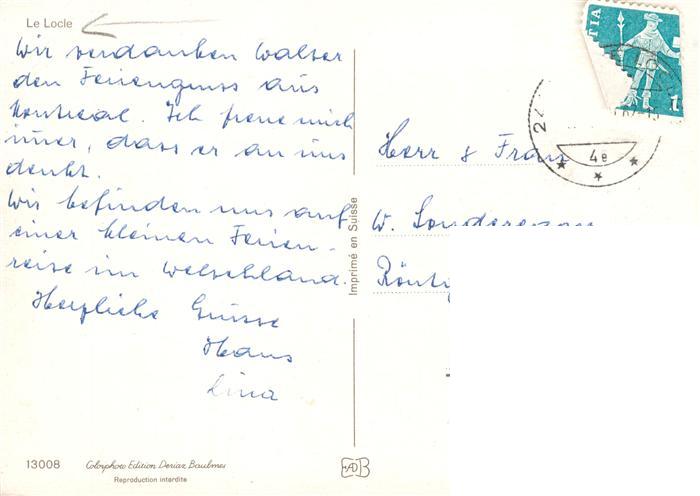 Le Locle
Wir verdanken Walser
den Feriengruss aus
Montreal. Ich freue mich
imer, dass er an uns
denkt.
Wir befinden uns auf
einer kleinen Ferien-
reise im Welschland.
Herzliche Grüsse
Hans
Lina
13008 Colorphoto Edition Deriaz Baulmes
Reproduction interdite
Imprimé en Suisse
TIA
24
4e
Herr & Frau
W. Sonderegger
Rönt